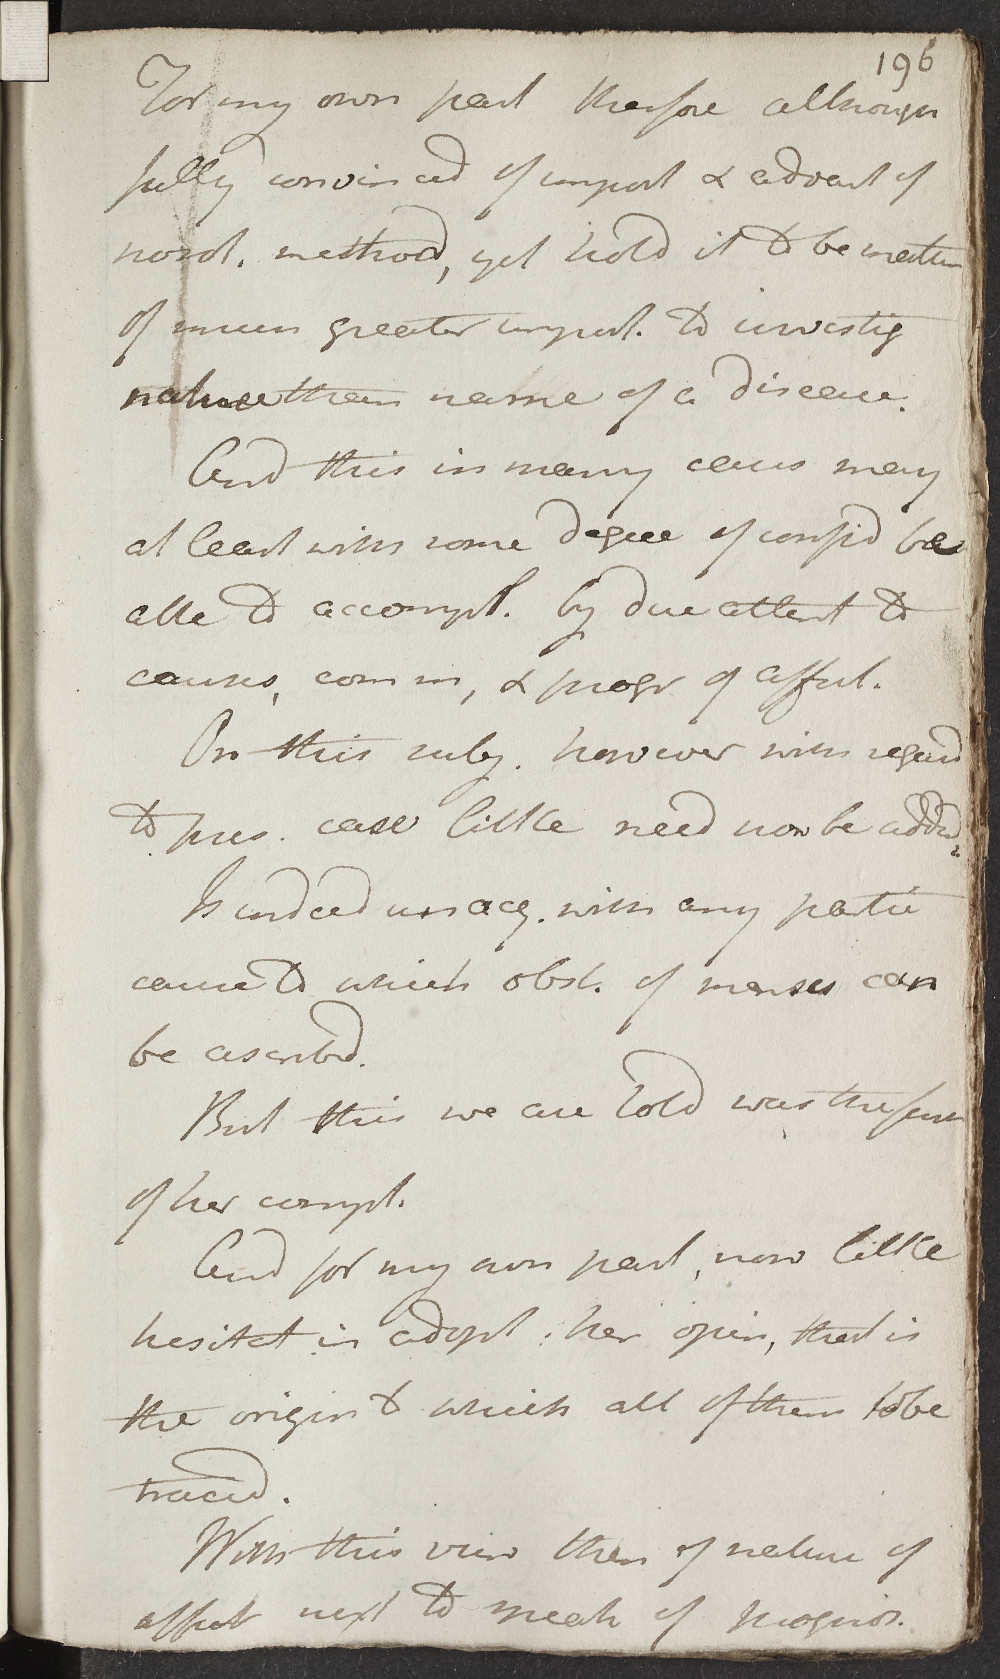 196
For my own part therfore although
fully convinced of import & advant of
nosol. method, yet hold it to be matter
of much greater import. to investig
nature than name of a disease.
And this in many cases may
at least with some degree of confid be
able to accompl. by due attent to
causes, comm, & progr of affect.
On this subj. however with regard
to pres. case little need now be added,
Is indeed unacq. with any partic
cause to which obst. of menses can
be ascribd.
But this we are told was the first
of her compt.
And for my own part, now little
hesitat in adopt. her opin, that is
the origin to which all of them to be
traced.
With this view then of nature of
affect next to speak of prognos.